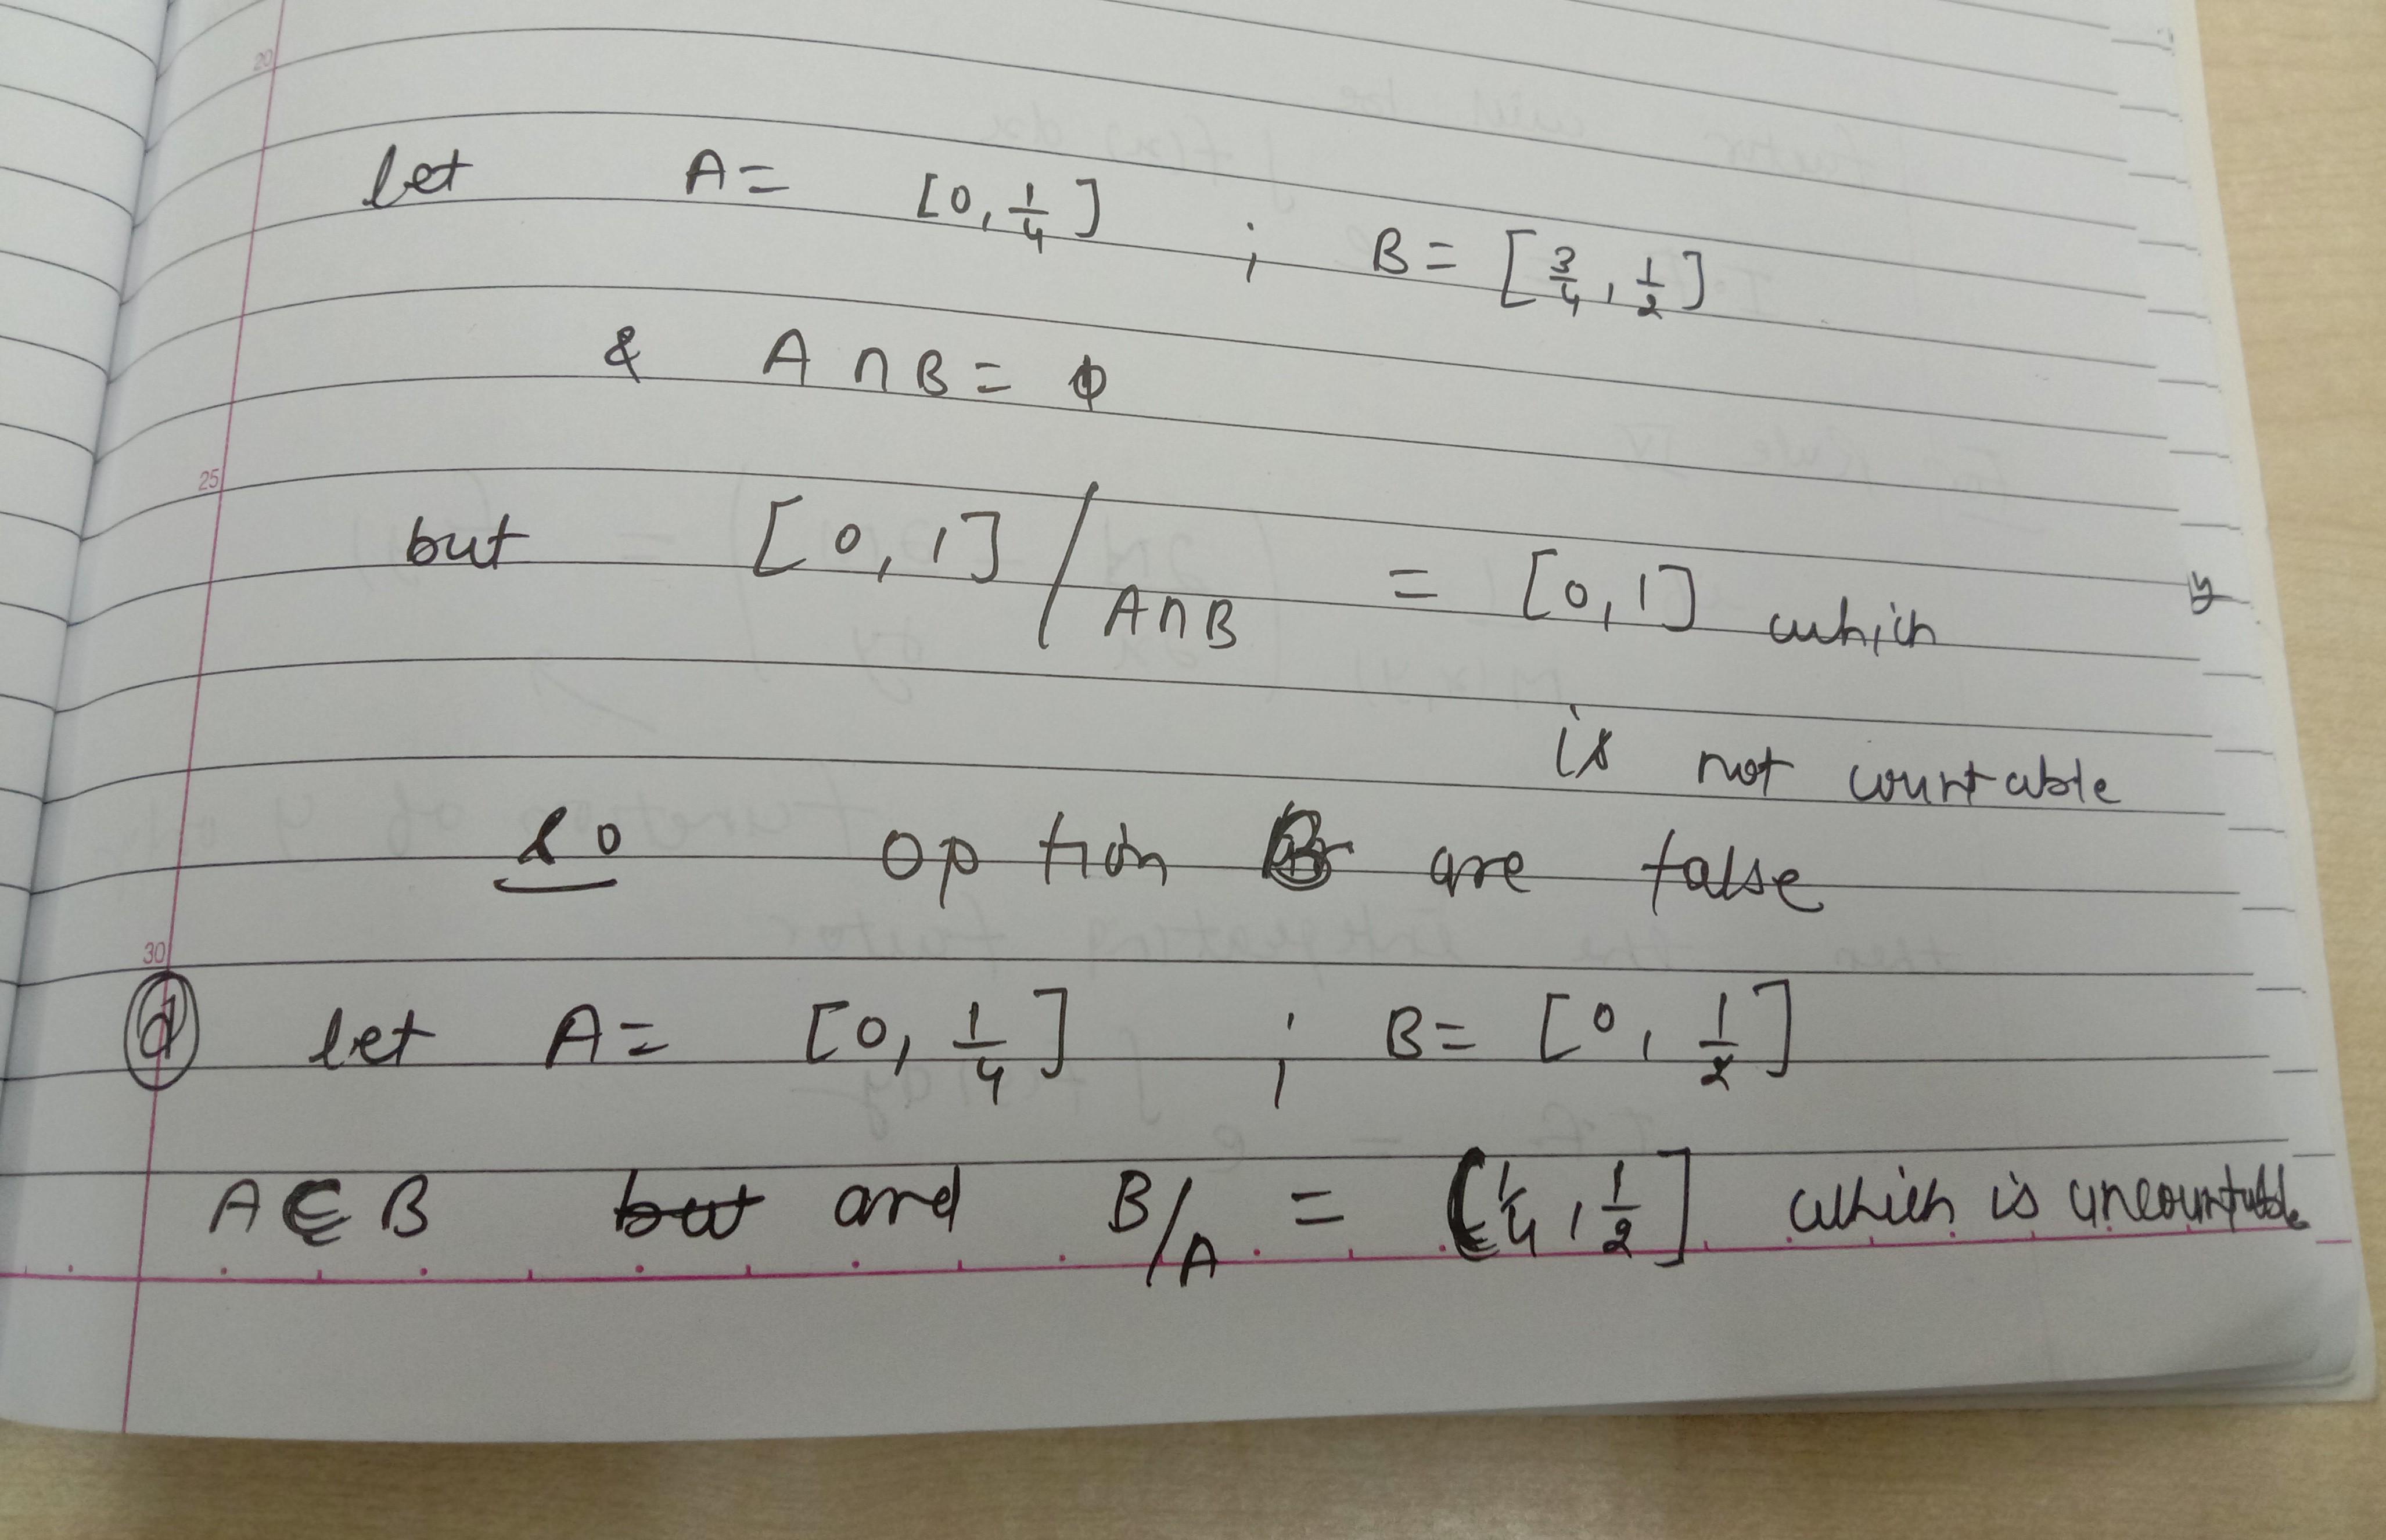 20
let A = [0, 1/4] ; B = [3/4, 1/2]
& A ∩ B = ϕ
25
but [0, 1] / A∩B = [0, 1] which
y
is not countable
so option B are false
30
(d) let A = [0, 1/4] ; B = [0, 1/2]
A ⊆ B but and B/A = (1/4, 1/2] which is uncountable